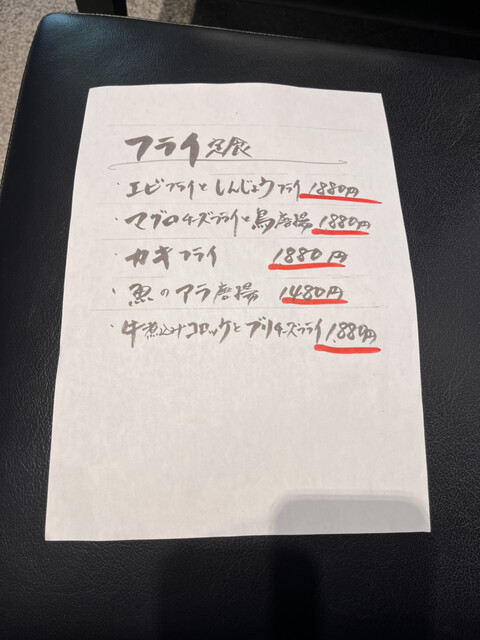 フライ定食
・エビフライとしんじょうフライ 1880円
・マグロチーズフライと鳥唐揚 1880円
・カキフライ 1880円
・魚のアラ唐揚 1480円
・牛煮込みコロッケとブリチーズフライ 1,880円